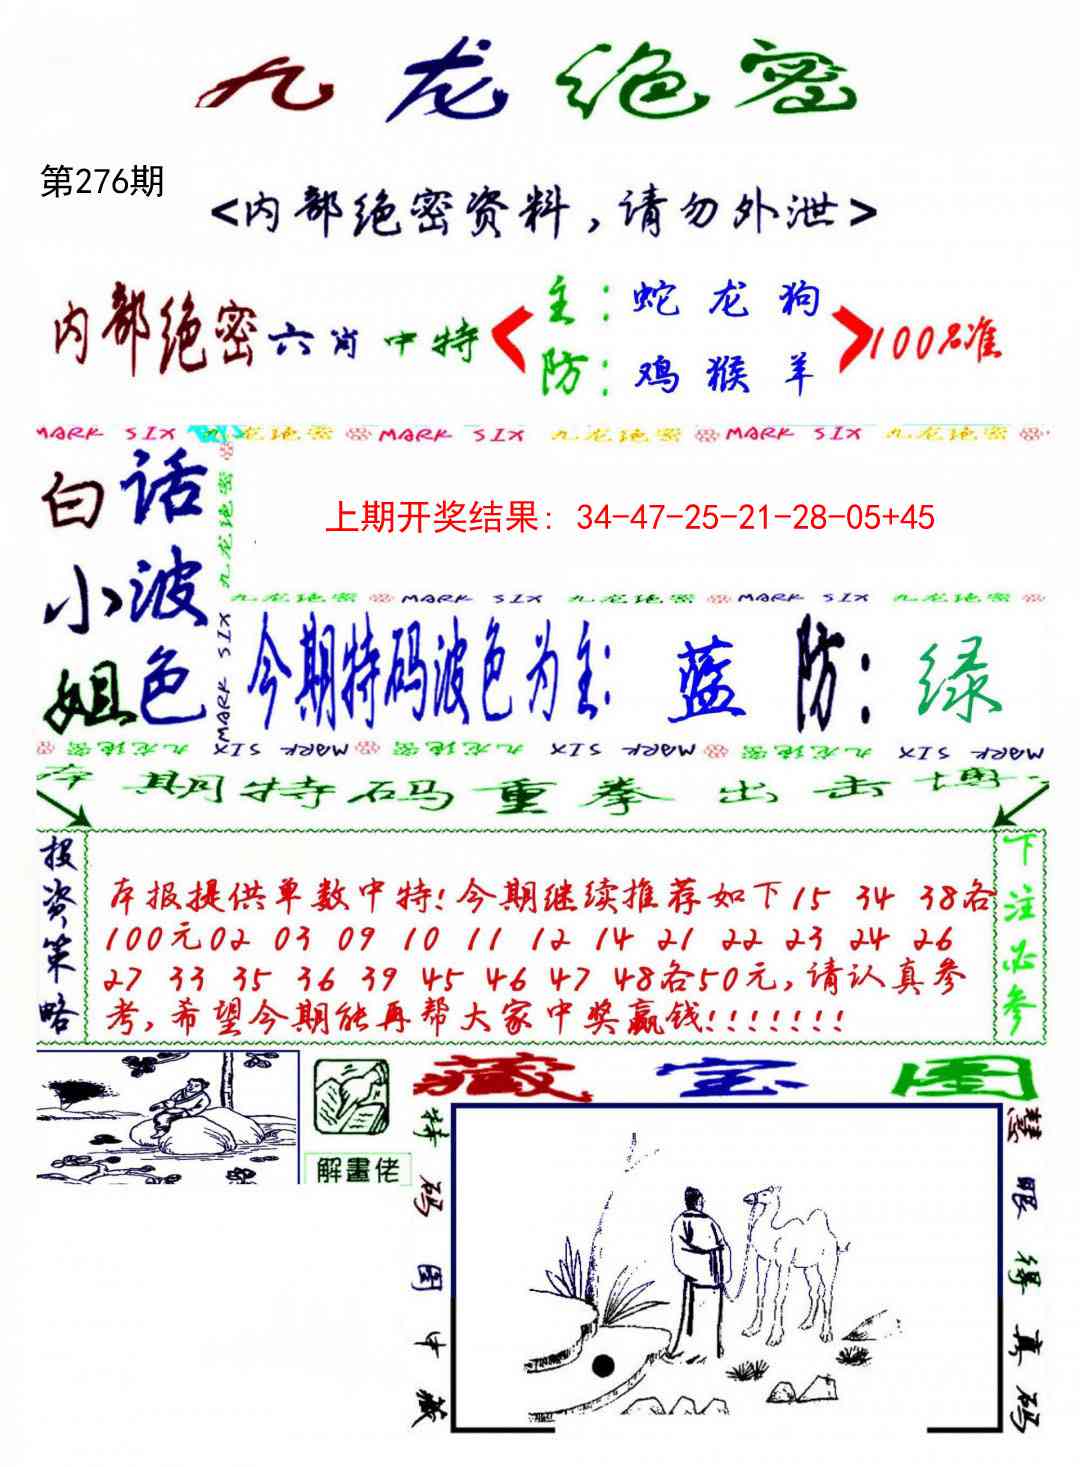 九龙绝密
第276期
<内部绝密资料，请勿外泄>
内部绝密六肖中特
主：蛇 龙 狗
防：鸡 猴 羊
100%准
MARK SIX 九龙绝密 MARK SIX 九龙绝密 MARK SIX 九龙绝密
白话
小波
姐色
九龙绝密
MARK SIX
上期开奖结果：34-47-25-21-28-05+45
九龙绝密 MARK SIX 九龙绝密 MARK SIX 九龙绝密
今期特码波色为主：蓝 防：绿
九龙绝密 MARK SIX 九龙绝密 MARK SIX 九龙绝密 MARK SIX
本期特码重拳出击博
投资策略
本报提供单数中特！今期继续推荐如下15 34 38各
100元02 03 09 10 11 12 14 21 22 23 24 26
27 33 35 36 39 45 46 47 48各50元，请认真参
考，希望今期能再帮大家中奖赢钱！！！！！！！
下注必参
解畫佬
藏宝图
特码图中藏
慧眼得真码